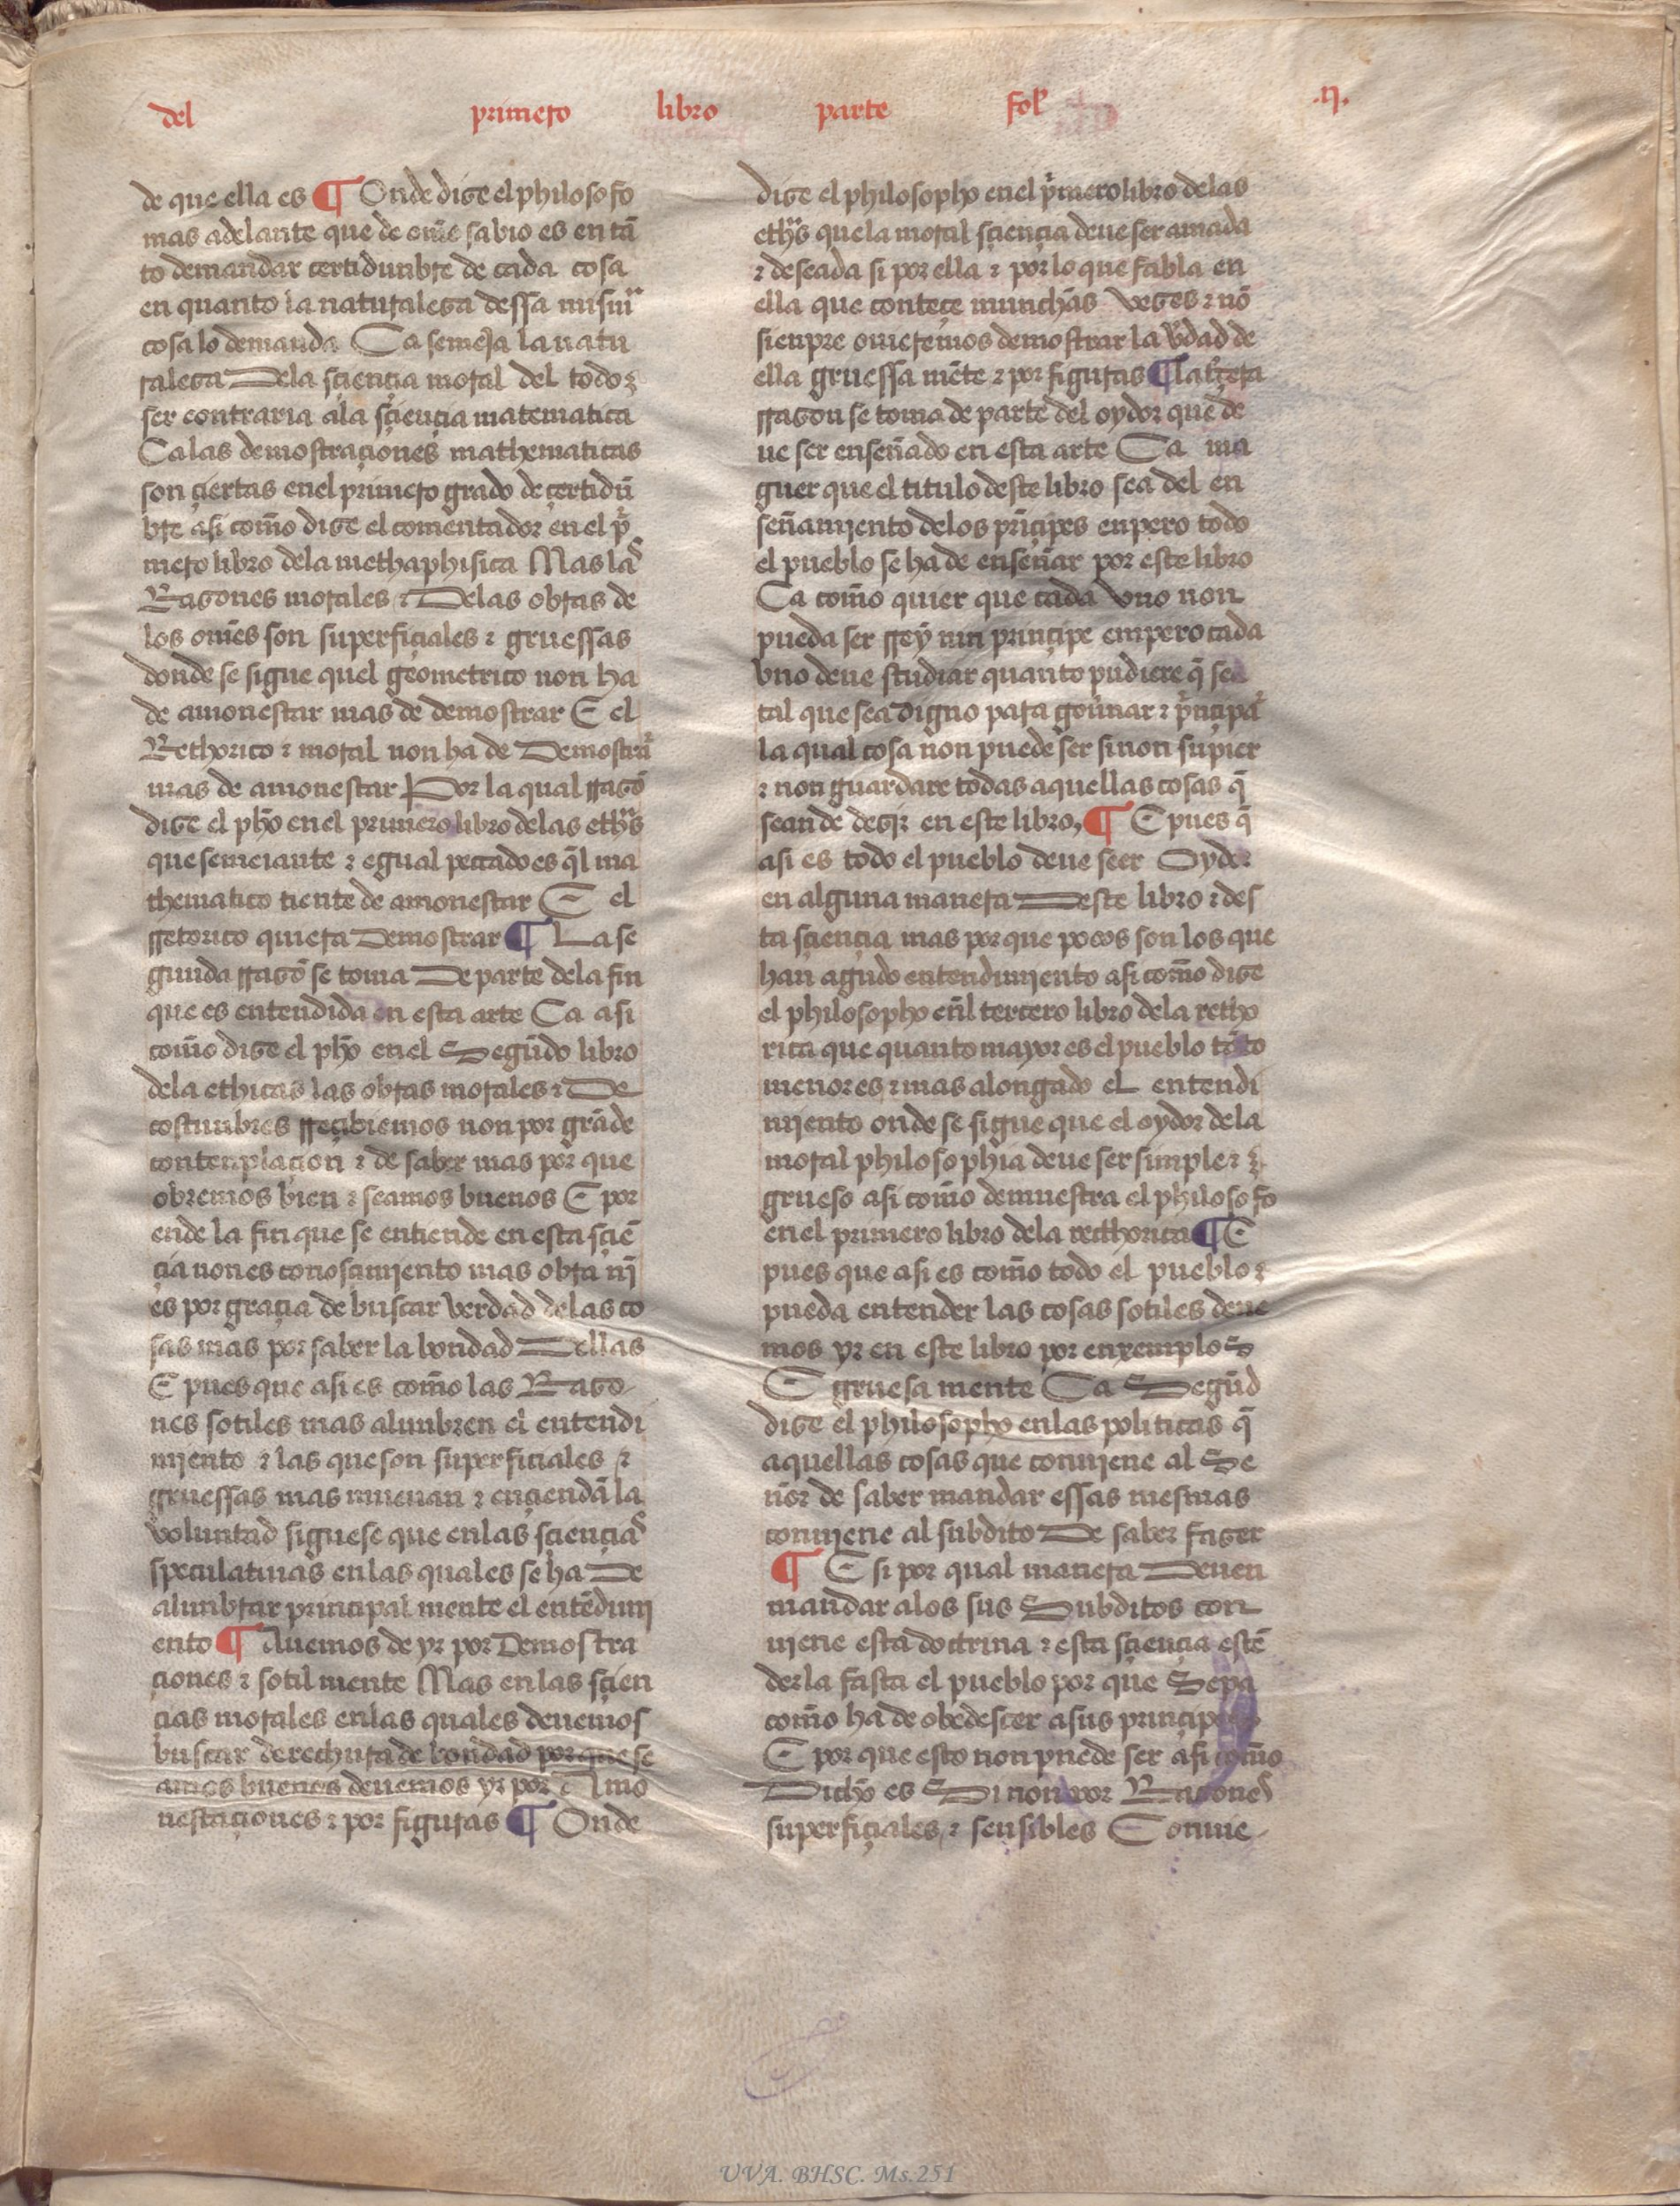 del primero libro parte fol .ij.
de que ella es ¶ Onde dize el philosofo
mas adelante que de om̃e sabio es en tã
to demandar certidunbre de cada cosa
en quanto la naturaleza dessa mism̃a
cosa lo demanda Ca semeja la natu
raleza Dela sçiençia moral del todo
ser contraria ala sçiençia matematica
Ca las demostraçiones mathematicas
son çiertas enel primero grado de çertidũ
bre asi com̃o dize el comentador en el pⁱ
mero libro dela methaphisica Mas las
Razones morales ⁊ Delas obras de
los om̃es son superfiçiales ⁊ gruessas
donde se sigue quel geometrico non ha
de amonestar mas de demostrar E el
Rethorico ⁊ moral non ha de Demostrar
mas de amonestar Por la qual rrazõ
dize el ph̃o en el primero libro delas eth̃s
que semeiante ⁊ egual peccado es q̃l ma
thematico tiente de amonestar E el
rretorico quiera Demostrar ¶ La se
gunda rrazõ se toma De parte dela fin
que es entendida en esta arte Ca asi
com̃o dize el ph̃o en el Segũdo libro
dela ethicas las obras morales ⁊ De
costunbres rreçibiemos non por grãde
contenplaçion ⁊ de saber mas por que
obremos bien ⁊ seamos buenos E por
ende la fin que se entiende en esta sçiẽ
çia non es conosçimjento mas obra nj̃
es por graçia de buscar verdad delas co
sas mas por saber la bondad Dellas
E pues que asi es com̃o las Razo
nes sotiles mas alunbren el entendi
mjento ⁊ las que son superficiales ⁊
gruessas mas mueuan ⁊ ençiendã la
voluntad siguese que enlas sçiençias
speculatiuas enlas quales se ha De
alunbrar principal mente el entẽdimj
ento ¶ Auemos de yr por Demostra
çiones ⁊ sotil mente Mas enlas sçien
çias morales enlas quales deuemos
buscar derechura de bondad porque se
amos buenos deuemos yr por Amo
nestaçiones ⁊ por figuras ¶ Onde
dize el philosopho en el pⁱmero libro delas
eth̃s que la moral sçiençia deue ser amada
⁊ deseada si por ella ⁊ por lo que fabla en
ella que conteçe munchas vezes ⁊ nõ
sienpre ouieremos demostrar la v̉dad de
ella gruessa mẽte ⁊ por figuras ¶ la tⁱçera
rrazon se toma de parte del oydor que de
ue ser enseñado en esta arte Ca ma
guer que el titulo deste libro sea del en
señamjento delos prĩçipes enpero todo
el pueblo se ha de enseñar por este libro
Ca com̃o quier que cada vno non
pueda ser rrey nin prinçipe empero cada
vno deue studiar quanto pudiere q̃ sea
tal que sea digno para goủnar ⁊ pⁱnçipar
la qual cosa non puede ser sinon supier
⁊ non guardare todas aquellas cosas q̃
sean de dezir en este libro, ¶ E pues q̃
asi es todo el pueblo deue seer Oydor
en alguna manera Deste libro ⁊ des
ta sçiençia mas por que pocos son los que
han agudo entendimjento asi com̃o dize
el philosopho en̉l tercero libro dela retho
rica que quanto mayor es el pueblo tãto
menor es ⁊ mas alongado el entendi
mjento onde se sigue que el oydor dela
moral philosophia deue ser simple ⁊
grueso asi com̃o demuestra el philosofo
en el primero libro dela recthorica ¶ E
pues que asi es com̃o todo el pueblo
pueda entender las cosas sotiles deue
mos yr en este libro por enxemplos
E gruesa mente Ca Segũd
dize el philosopho enlas politicas q̃
aquellas cosas que conujene al Se
ñor de saber mandar essas mesmas
conujene al subdito De saber fazer
¶ E si por qual manera Deuen
mandar alos sus Subditos con
ujene esta doctrina ⁊ esta sçiençia estẽ
derla fasta el pueblo por que Sepa
com̃o ha de obedesçer a sus prinçipes
E por que esto non puede ser asi com̃o
Dicho es Si non por Razones
superfiçiales, ⁊ sensibles Conuie
UVA. BHSC. Ms.251